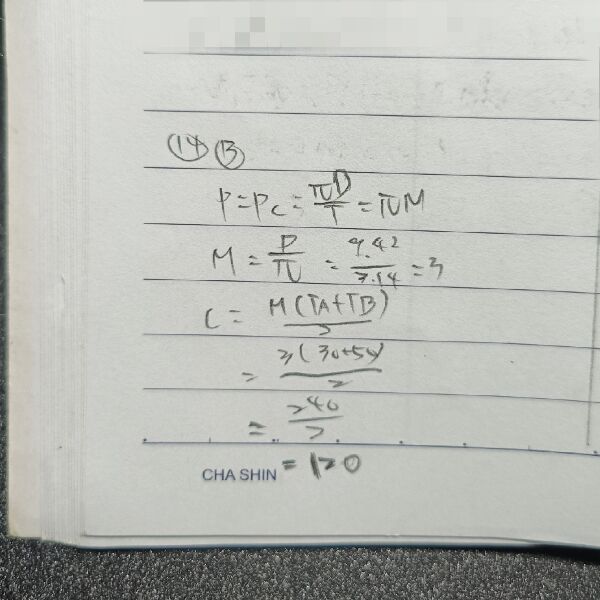 ⑭ Ⓑ
P = Pc = πD/T = πM
M = P/π = 9.42/3.14 = 3
C = M(TA+TB)/2
= 3(30+50)/2
= 240/2
= 120
CHA SHIN